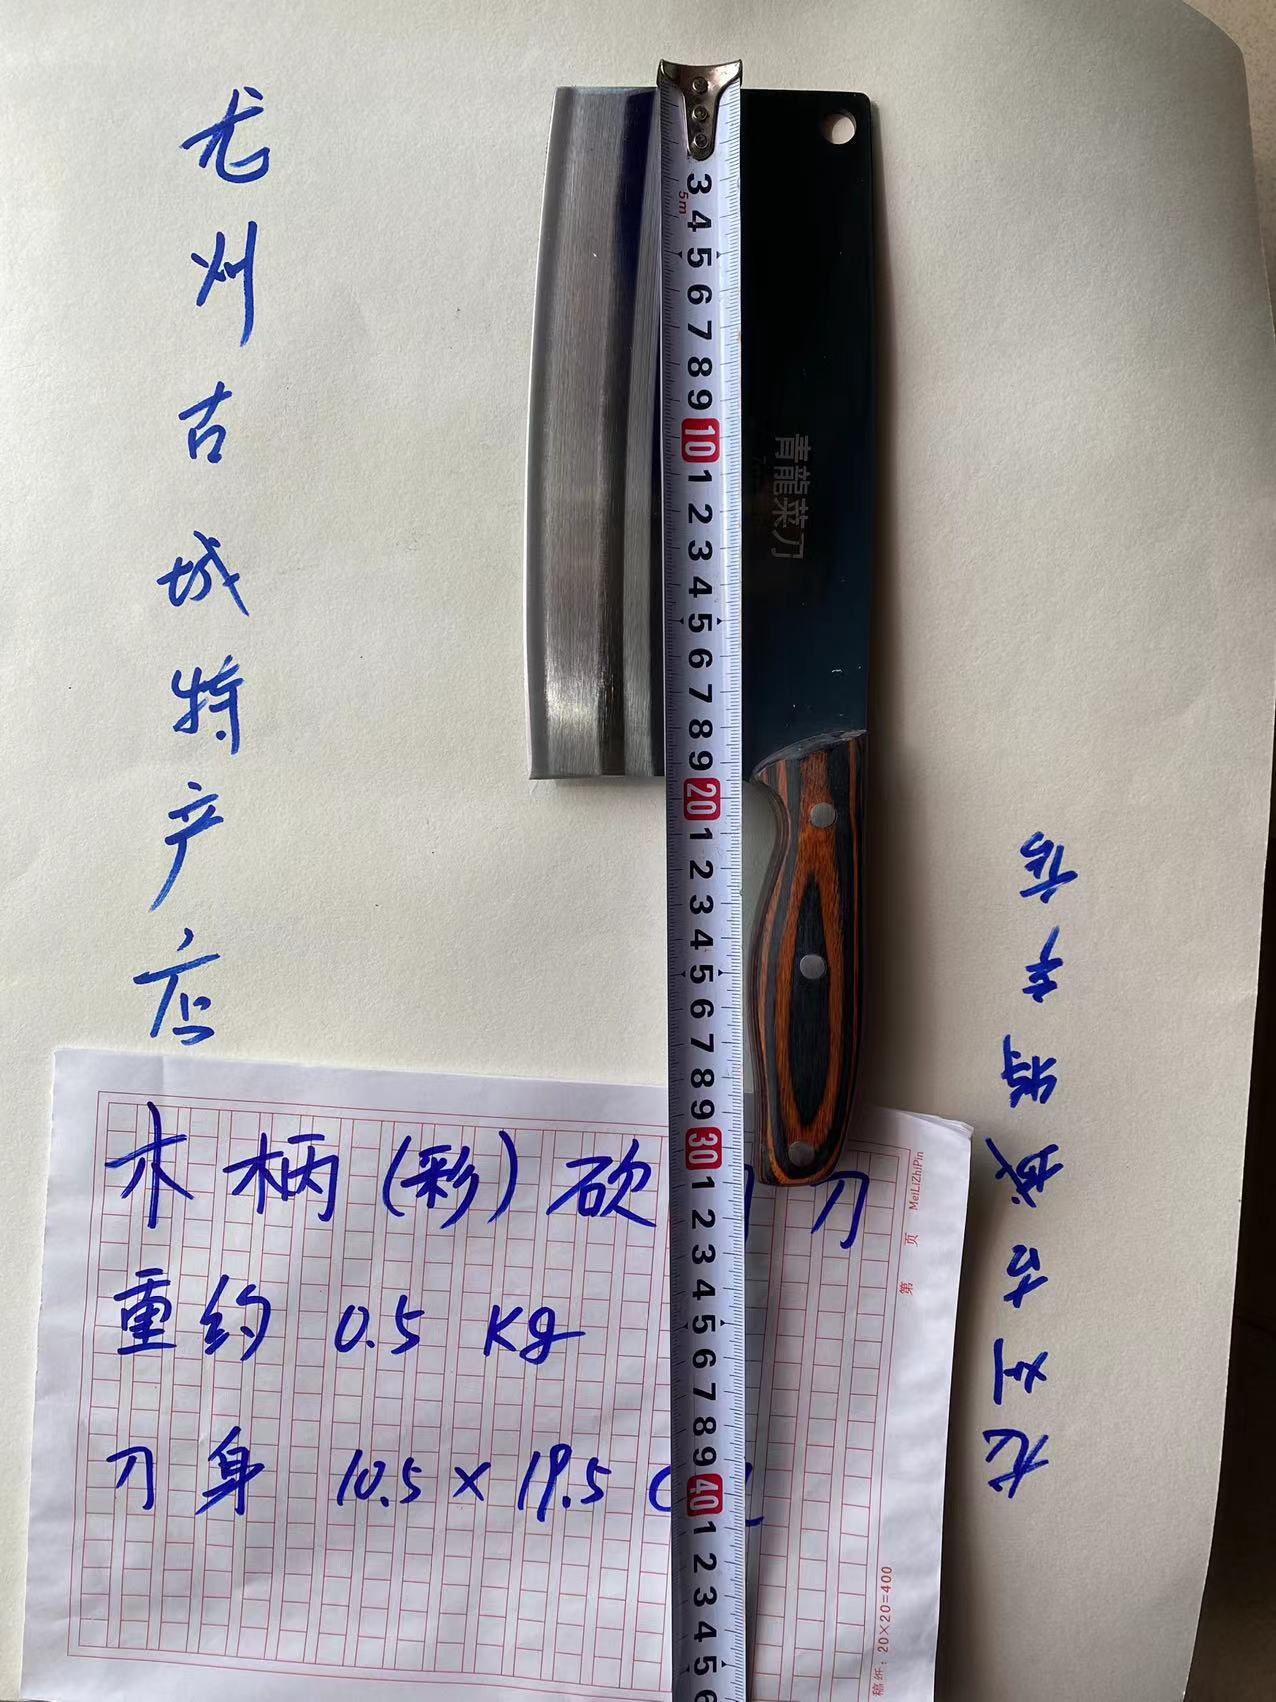 龙州古城特产店
5m
3 4 5 6 7 8 9 10 1 2 3 4 5 6 7 8 9 20 1 2 3 4 5 6 7 8 9 30 1 2 3 4 5 6 7 8 9 40 1 2 3 4 5 6
青龍菜刀
木柄(彩)砍 刀
重约 0.5 Kg
刀身 10.5×19.5 c
第 页 MeiLiZhiPin
稿纸：20×20=400
龙州古城特产店